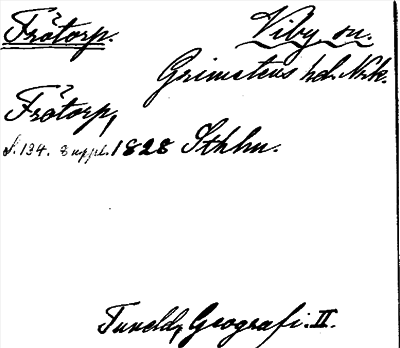 Frötorp. Viby sn.
Grimstens hd. Nrk.
Frötorp,
s. 134. Suppl. 1828 Sthlm.
Tuneld, Geografi. II.